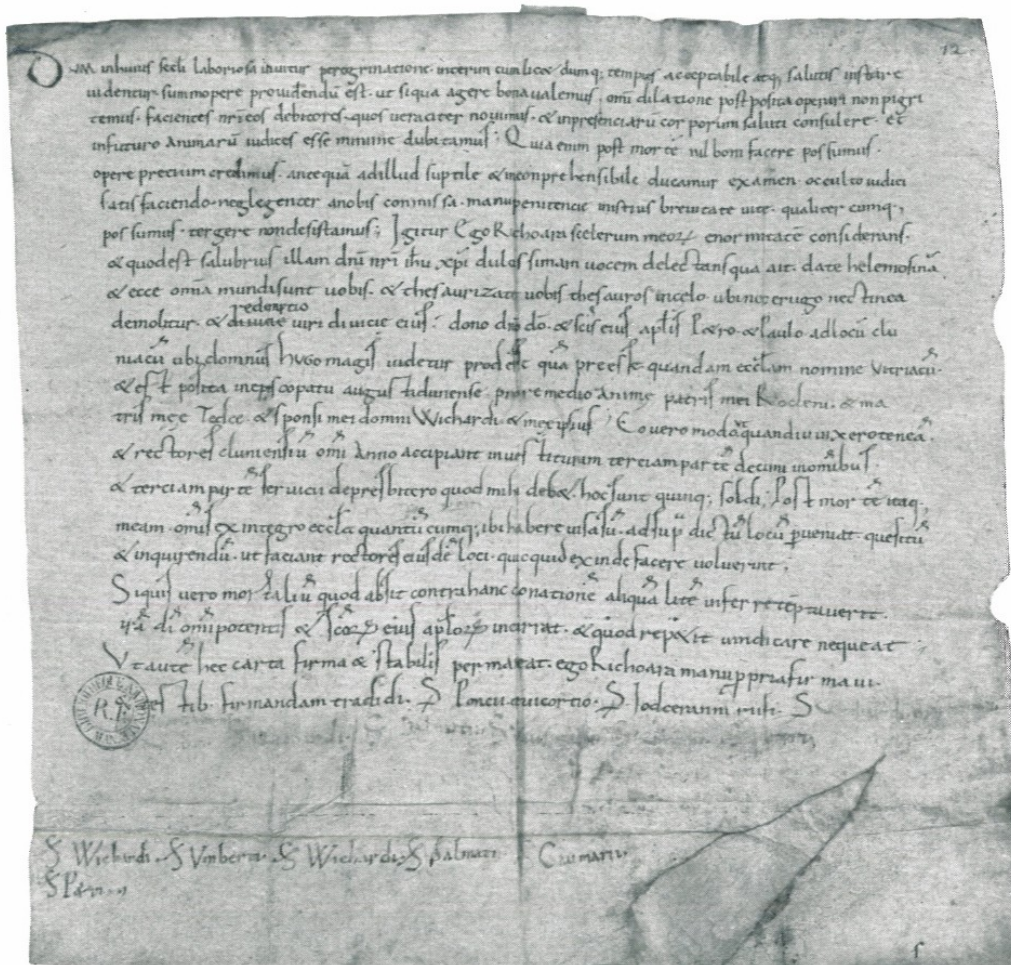 12
Dum inhuius secli laboriosa uiuitur peregrinatione. interim cum licet dumq; tempus acceptabile atq; salutis instare
uidentur. summopere prouidendū est. ut siqua agere bona ualemus. omī dilatione post posita operiri non pigri
temus. facientes nr̄i eos debitores. quos ueraciter nouimus. & inpresenciarū cor porum saluti consulere. et
infuturo animarū iudices esse minime dubitamus. Quia enim post mor tē nil boni facere pos sumus.
opere precium credimus. antequā ad illud suptile & inconprehensibile ducamur examen. occulto iudici
satis faciendo. neglegenter anobis commis sa. manu penitencie inistius breuitate uite. qualiter cumq;
pos sumus. tergere non desistamus; Igitur Ego Richoara scelerum meoꝝ enor mitatē considerans.
& quod est salubrius illam dnī nr̄i ihu xp̄i dulcis simam uocem delectans qua ait. date helemosinā
& ecce omīa munda sunt uobis. & thesaurizate uobis thesauros incelo. ubi nec erugo nec tinea
redemptio
demolitur. & diuine uiri diuicie eius. dono dn̄o dō. & scīs eius aptīs Petro. & Paulo. ad locū clu
niacū ubi domnus hugo magis uidetur prodēsse quā preesse. quandam ecctam nomine Vitriacū.
& est posita inepiscopatu augus tidunense. pro remedio anime patris mei Rocleni. & ma
tris mee Tedce. & sponsi mei domni Wichardi. & me ipsius. Eo uero modo quandiu uixero teneā.
& rectores cluniensiū omī anno accipiant inues tituram terciam par tē decimi inomībus.
& terciam par tē ser uicii de presbitero quod mihi debet. hoc sunt quinq; soldi. Post mor tē itaq;
meam. omīs ex integro ecctā quantū cumq; ibi habere uisa sū. ad sup̄ dic tū locū perueniat. quesitū
& inquirendū. ut faciant rectores eius dē loci. quicquid exinde facere uoluerint;
Siquis uero mor taliū quod absit contra hanc donationē aliquā litē infer re tēptauerit.
irā dī omīpotentis & scoꝝ eius aptoꝝ incurrat. & quod repetit uindicare nequeat;
Vt autē hec carta firma & stabilis per maneat. ego Richoara manu ppria fir maui.
& testib. firmandam tradidi. S Poncii. S Iodceranni. S
S Wichardi. S Vmberti. S Wichardi. S
S